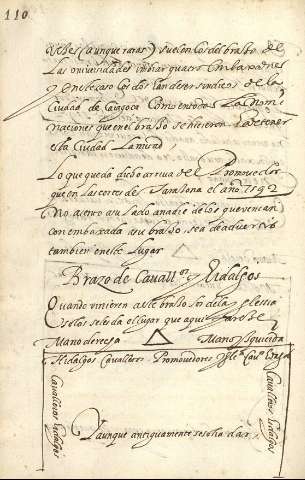 110
Vezes (aunque raras) suelen los del brazo de
Las universidades imbiar quatro Embaxadores
y en ste caso los dos han de ser sindicos de la
Ciudad de Caragoça Comvertidos La nomi
naciones que en el brazo se hicieren
esta Ciudad La mitad
Lo que queda dicho arriva del Promovedor
que en Las cortes de Tarasona el año 1592
No asento a su Lado a nadie de los que venian
con embaxada a su brazo se a de advertir
tambien en este Lugar
Brazo de Cavall.os y Hidalgos
Quando vinieren a este brazo los de la yglesia
se les da el lugar que aqui parece
Mano derecha Mano yzquierda
Hidalgos Cavalleros Promovedores
Cavalleros Hidalgos
Cavalleros Hidalgos
Y aunque antiguamente se solia dar